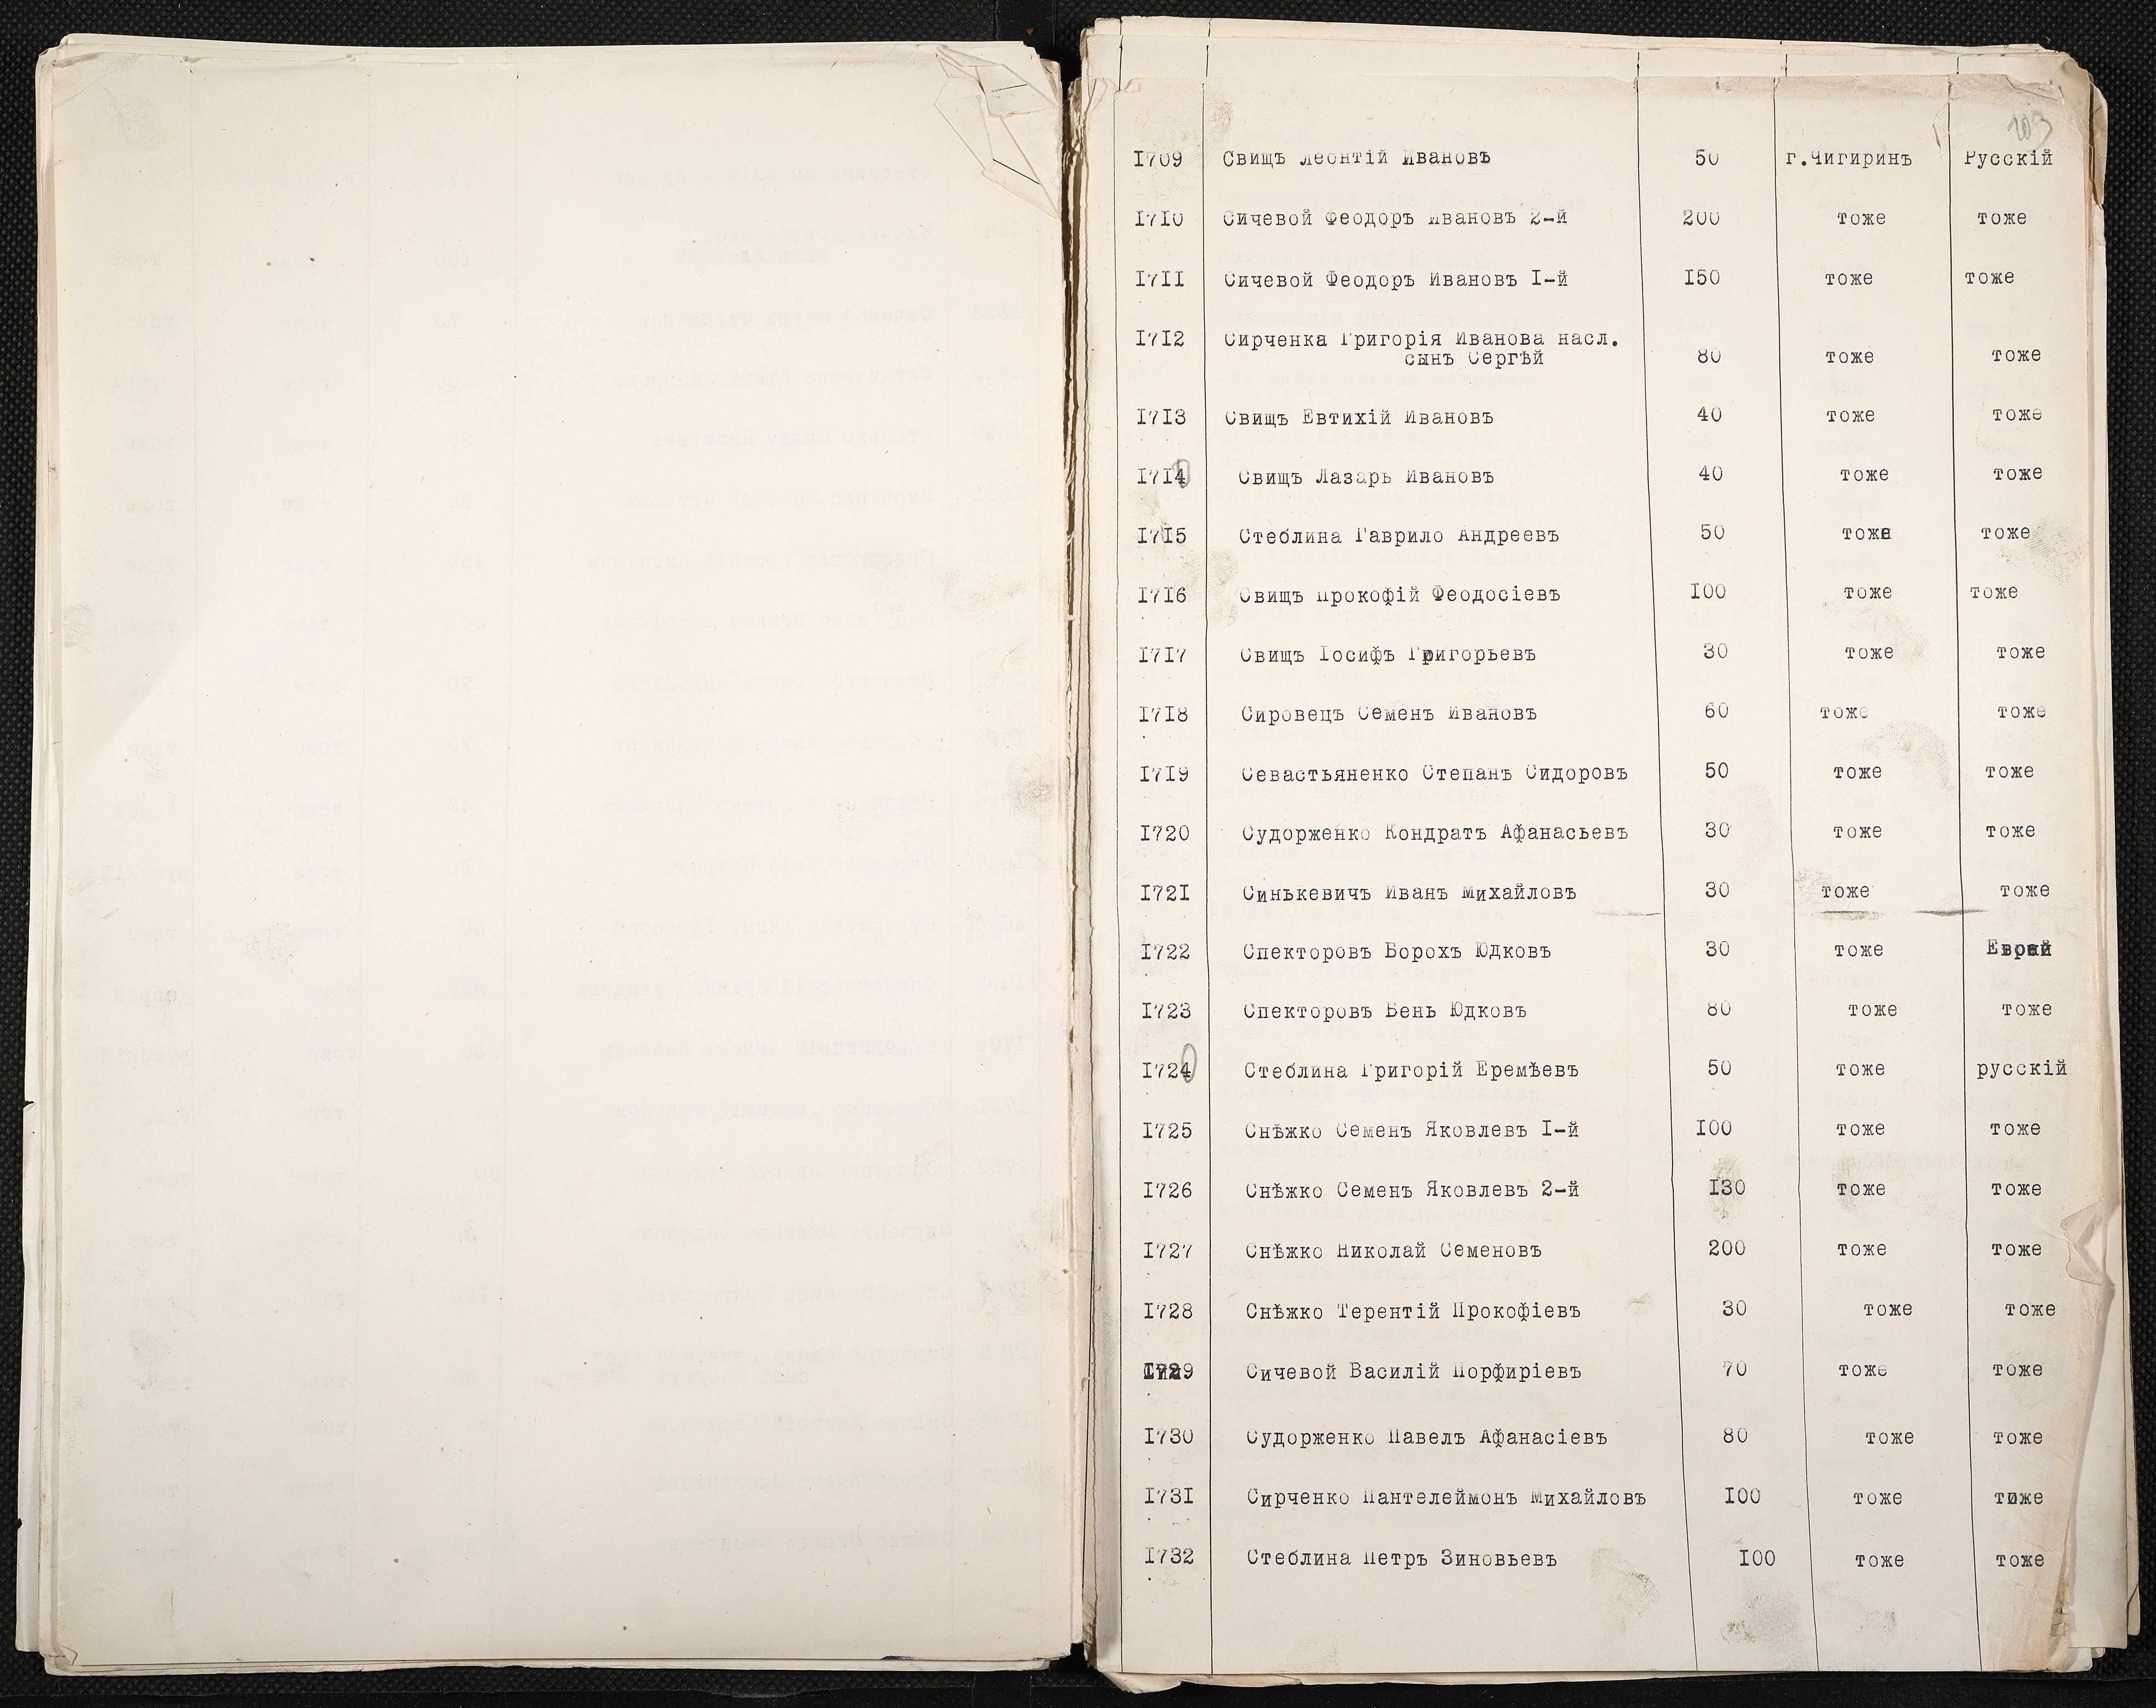 203
1709 Свищъ Леонтій Ивановъ 50 г.Чигиринъ Русскій
1710 Сичевой Феодоръ Ивановъ 2-й 200 тоже тоже
1711 Сичевой Феодоръ Ивановъ 1-й 150 тоже тоже
1712 Сирченка Григорія Иванова насл.
сынъ Сергѣй 80 тоже тоже
1713 Свищъ Евтихій Ивановъ 40 тоже тоже
1714 Свищъ Лазарь Ивановъ 40 тоже тоже
1715 Стеблина Гаврило Андреевъ 50 тоже тоже
1716 Свищъ Прокофій Феодосіевъ 100 тоже тоже
1717 Свищъ Іосифъ Григорьевъ 30 тоже тоже
1718 Сировецъ Семенъ Ивановъ 60 тоже тоже
1719 Севастьяненко Степанъ Сидоровъ 50 тоже тоже
1720 Судорженко Кондратъ Афанасьевъ 30 тоже тоже
1721 Синькевичъ Иванъ Михайловъ 30 тоже тоже
1722 Спекторовъ Борохъ Юдковъ 30 тоже Еврей
1723 Спекторовъ Бень Юдковъ 80 тоже тоже
1724 Стеблина Григорій Еремѣевъ 50 тоже русскій
1725 Снѣжко Семенъ Яковлевъ 1-й 100 тоже тоже
1726 Снѣжко Семенъ Яковлевъ 2-й 130 тоже тоже
1727 Снѣжко Николай Семеновъ 200 тоже тоже
1728 Снѣжко Терентій Прокофіевъ 30 тоже тоже
1729 Сичевой Василій Порфиріевъ 70 тоже тоже
1730 Судорженко Павелъ Афанасіевъ 80 тоже тоже
1731 Сирченко Пантелеймонъ Михайловъ 100 тоже тоже
1732 Стеблина Петръ Зиновьевъ 100 тоже тоже